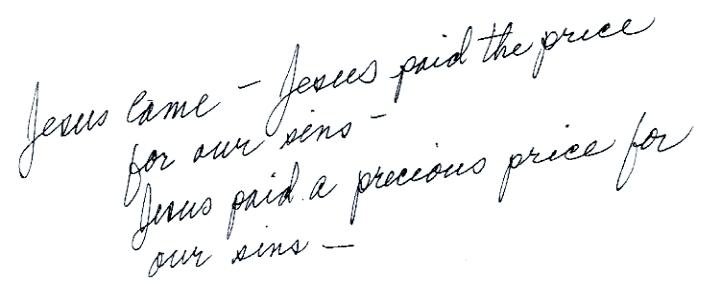 Jesus came – Jesus paid the price
for our sins –
Jesus paid a precious price for
our sins —